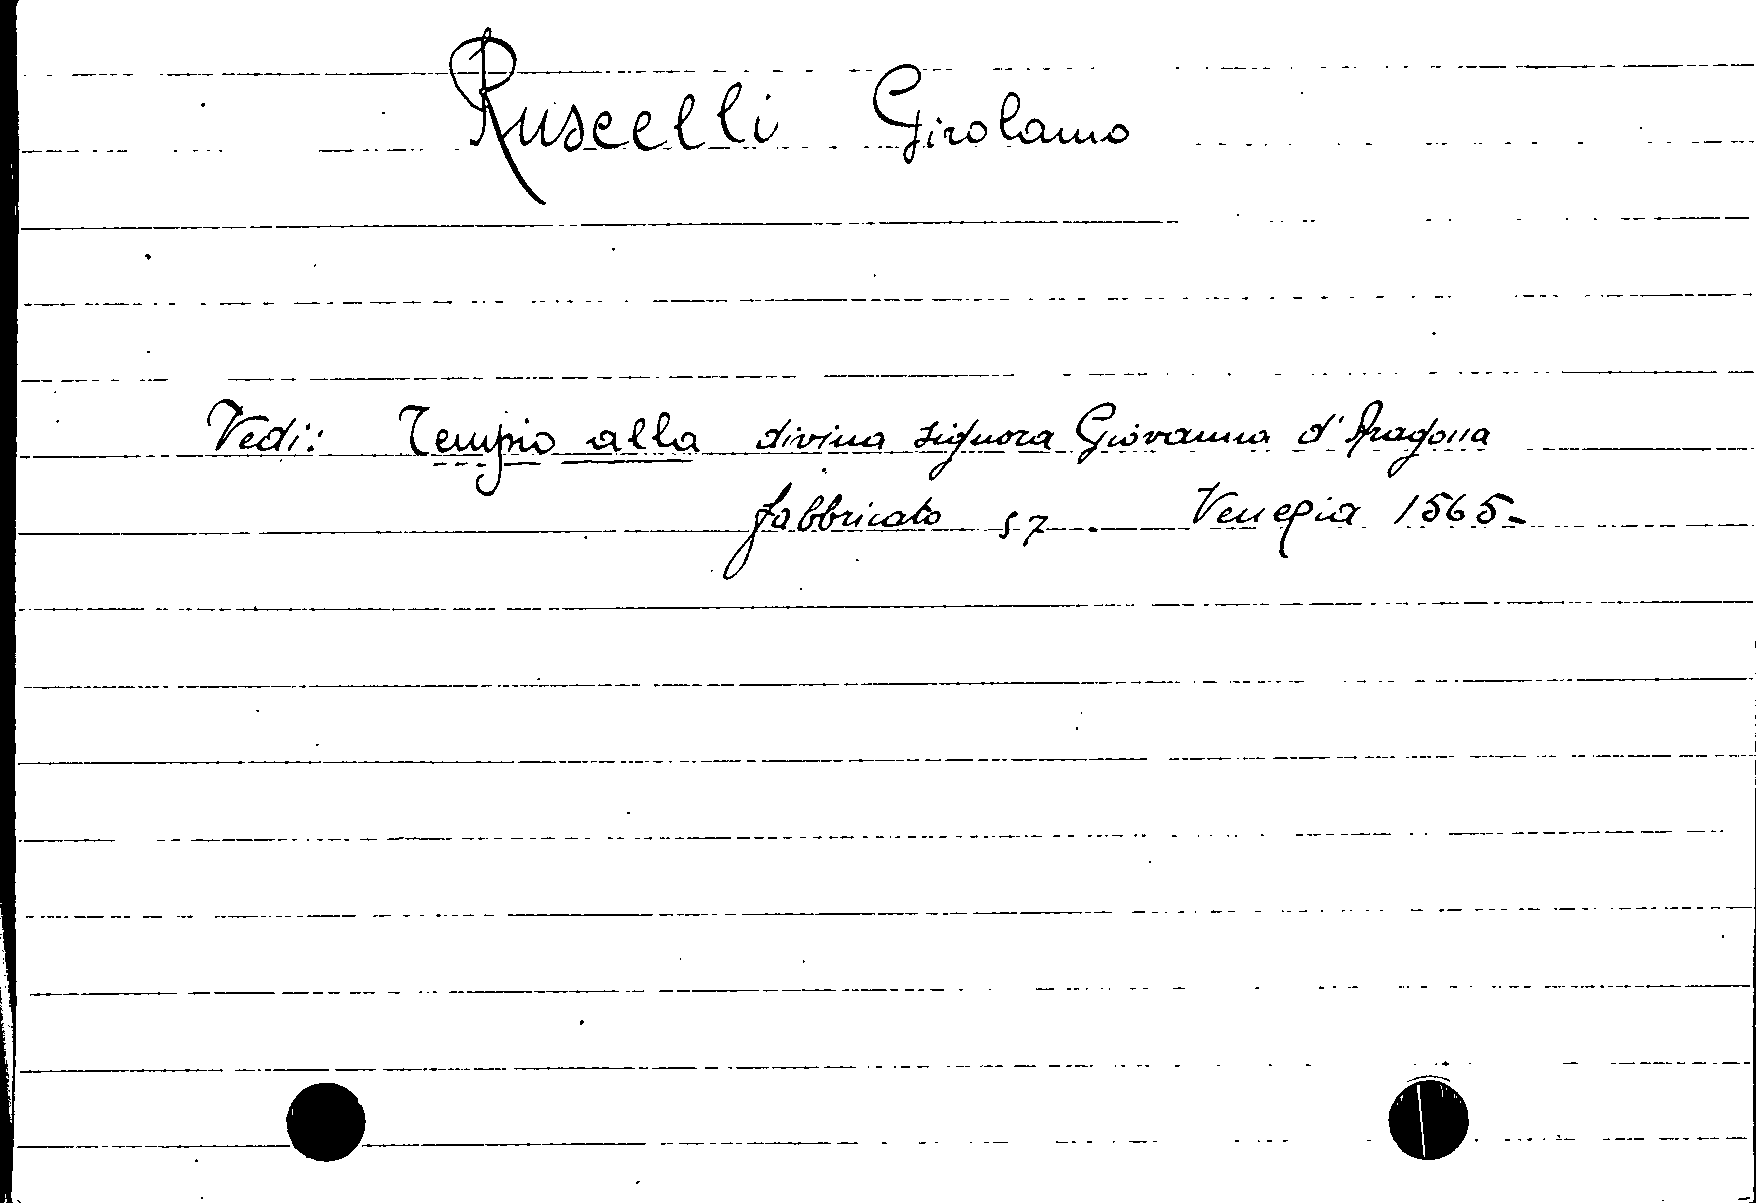 Ruscelli Girolamo
Vedi: Tempio alla divina signora Giovanna d'Aragona
fabbricato sz. Venezia 1565-